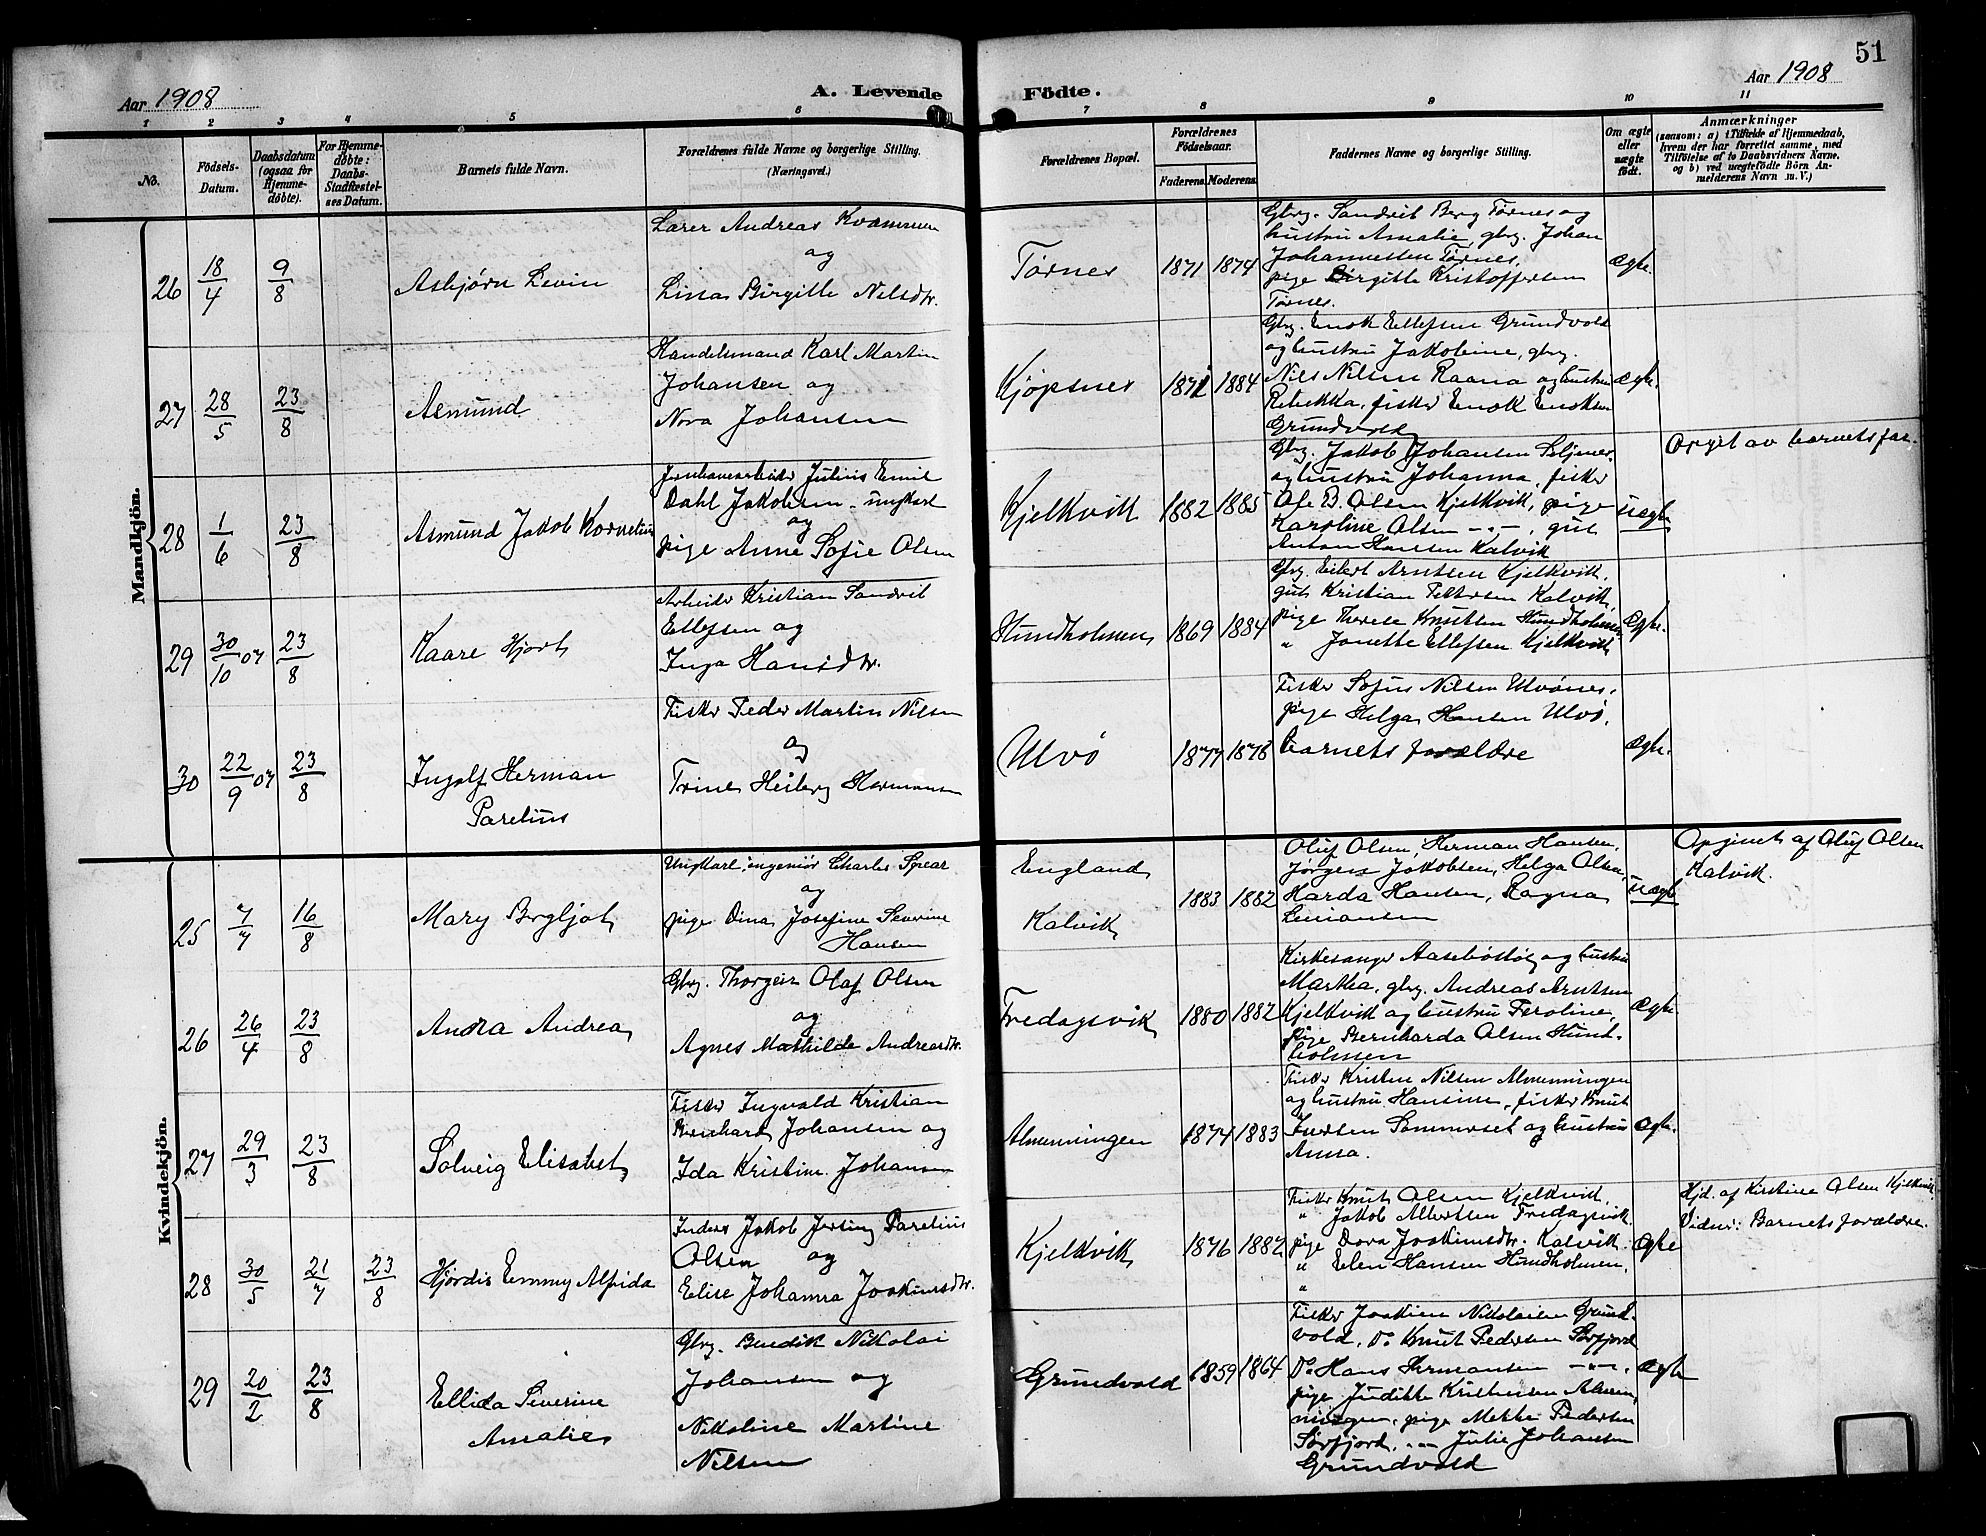 51
Aar 1908
A. Levende
Födte.
Aar 1908
1 2 3 4 5 6 7 8 9 10 11
No.
Födsels-
Datum.
Daabsdatum
(ogsaa for
Hjemme-
döbte).
For Hjemme-
döbte:
Daabs-
Stadfæstel-
ses Datum.
Barnets fulde Navn.
Forældrenes fulde Navne og borgerlige Stilling.
(Næringsvei.)
Forældrenes Bopæl.
Forældrenes
Födselsaar.
Faderens. Moderens.
Faddernes Navne og borgerlige Stilling.
Om ægte
eller
uægte
födt.
Anmærkninger
(saasom: a) i Tilfælde af Hjemmedaab,
hvem der har forrettet samme, med
Tilföielse af to Daabsvidners Navne.
og b) ved uægtefödte Börn An-
melderens Navn m. V.)
Mandkjön.
26 18/4 9/8
Asbjørn Levin
Lærer Andreas Kvammen
og
Lina Birgitte Nilsdtr.
Tørnes
1871 1874
Gbrg. Sandvit Berg Tørnes og
hustru Amalie, gbrg. Johan
Johannessen Tørnes,
pige Birgitte Kristoffersen
Tørnes.
Ægte.
27 28/5 23/8
Asmund
Handelsmand Karl Martin
Johansen og
Nora Johansen
Kjøpsnes
1871 1884
Gbrg. Enok Ellefsen Grundvold
og hustru Jakobine, gbrg.
Nils Nilsen Raana og hustru
Rebekka, fisker Enok Enoksen
Grundvold
Ægte.
28 1/6 23/8
Asmund Jakob Kornelius
Jernbanearbeider Julius Emil
Dahl Jakobsen - ungkarl
og
pige Anne Sofie Olsen
Kjelkvik
1882 1885
Gbrg. Jakob Johansen
og hustru Johanna, fisker
Ole B. Olsen Kjelkvik, pige
Karoline Olsen -"-, gut
Anton Hansen Kalvik
Uægte
Opgit av barnets far.
29 30/10 07 23/8
Kaare Hjort
Arbeider Kristian Sandvit
Ellefsen og
Inga Hansdtr.
Hundholmen
1869 1884
Gbrg. Eilert Arntsen Kjelkvik,
gut Kristian Pettersen Kalvik,
pige Therese Knutsen Hundholmen
" Jonette Ellefsen Kjelkvik
Ægte.
30 22/9 07 23/8
Ingolf Herman
Parelius
Fisker Peder Martin Nilsen
og
Trine Heiberg Hermansen
Ulvö
1877 1878
Fisker Sofus Nilsen Ulvönes,
pige Helga Hansen Ulvö,
barnets forældre
Ægte.
Kvindekjön.
25 7/7 16/8
Mary Bergljot
Ungkarl, ingeniör Charles Spear
og
pige Dina Josefine Severine
Hansen
England
Kalvik
1883 1882
Oluf Olsen, Herman Hansen,
Jørgen Jakobsen, Helga Olsen,
Harda Hansen, Ragna
Uægte
Opgivet af Oluf Olsen
Kalvik.
26 26/4 23/8
Andra Andrea
Gbrg. Thorgeir Olaf Olsen
og
Agnes Mathilde Andreasdtr.
Fredagsvik
1880 1882
Kirkesanger Aasebøstøl og hustru
Martha, gbrg. Andreas Arntsen
Kjelkvik og hustru Feroline,
pige Bernharda Olsen Hund-
holmen
Ægte.
27 29/3 23/8
Solveig Elisabet
Fisker Ingvald Kristian
Bernhard Johansen og
Ida Kristine Johansen
Almenningen
1874 1883
Fisker Kristen Nilsen Almenningen
og hustru Hansine, fisker Knut
Iversen Sommerset og hustru
Anna.
Ægte.
28 30/5 21/7 23/8
Hjördis Emmy Alfrida
Inders Jakob Jersing Parelius
Olsen og
Elise Johanna Joakimsdtr.
Kjelkvik
1876 1882
Fisker Knut Olsen Kjelkvik,
" Jakob Albertsen Fredagsvik
pige Dora Joakimsdtr. Kalvik.
" Elen Hansen Hundholmen,
"
Ægte
Hjd. af Kirstine Olsen Kjelkvik
Vidner: Barnets forældre.
29 20/2 23/8
Ellida Severine
Amalie
Gbrg. Bendik Nikolai
Johansen og
Nikoline Martine
Nilsen
Grundvold
1859 1864
Fisker Joakim Nikolaisen Grund-
vold, Do Knut Pedersen Sørfjord
Do Hans Hermansen -"-,
pige Judikke Kristensen Almen-
ningen, pige Mekke Pedersen
Sørfjord, -"- Julie Johansen
Grundvold
Ægte